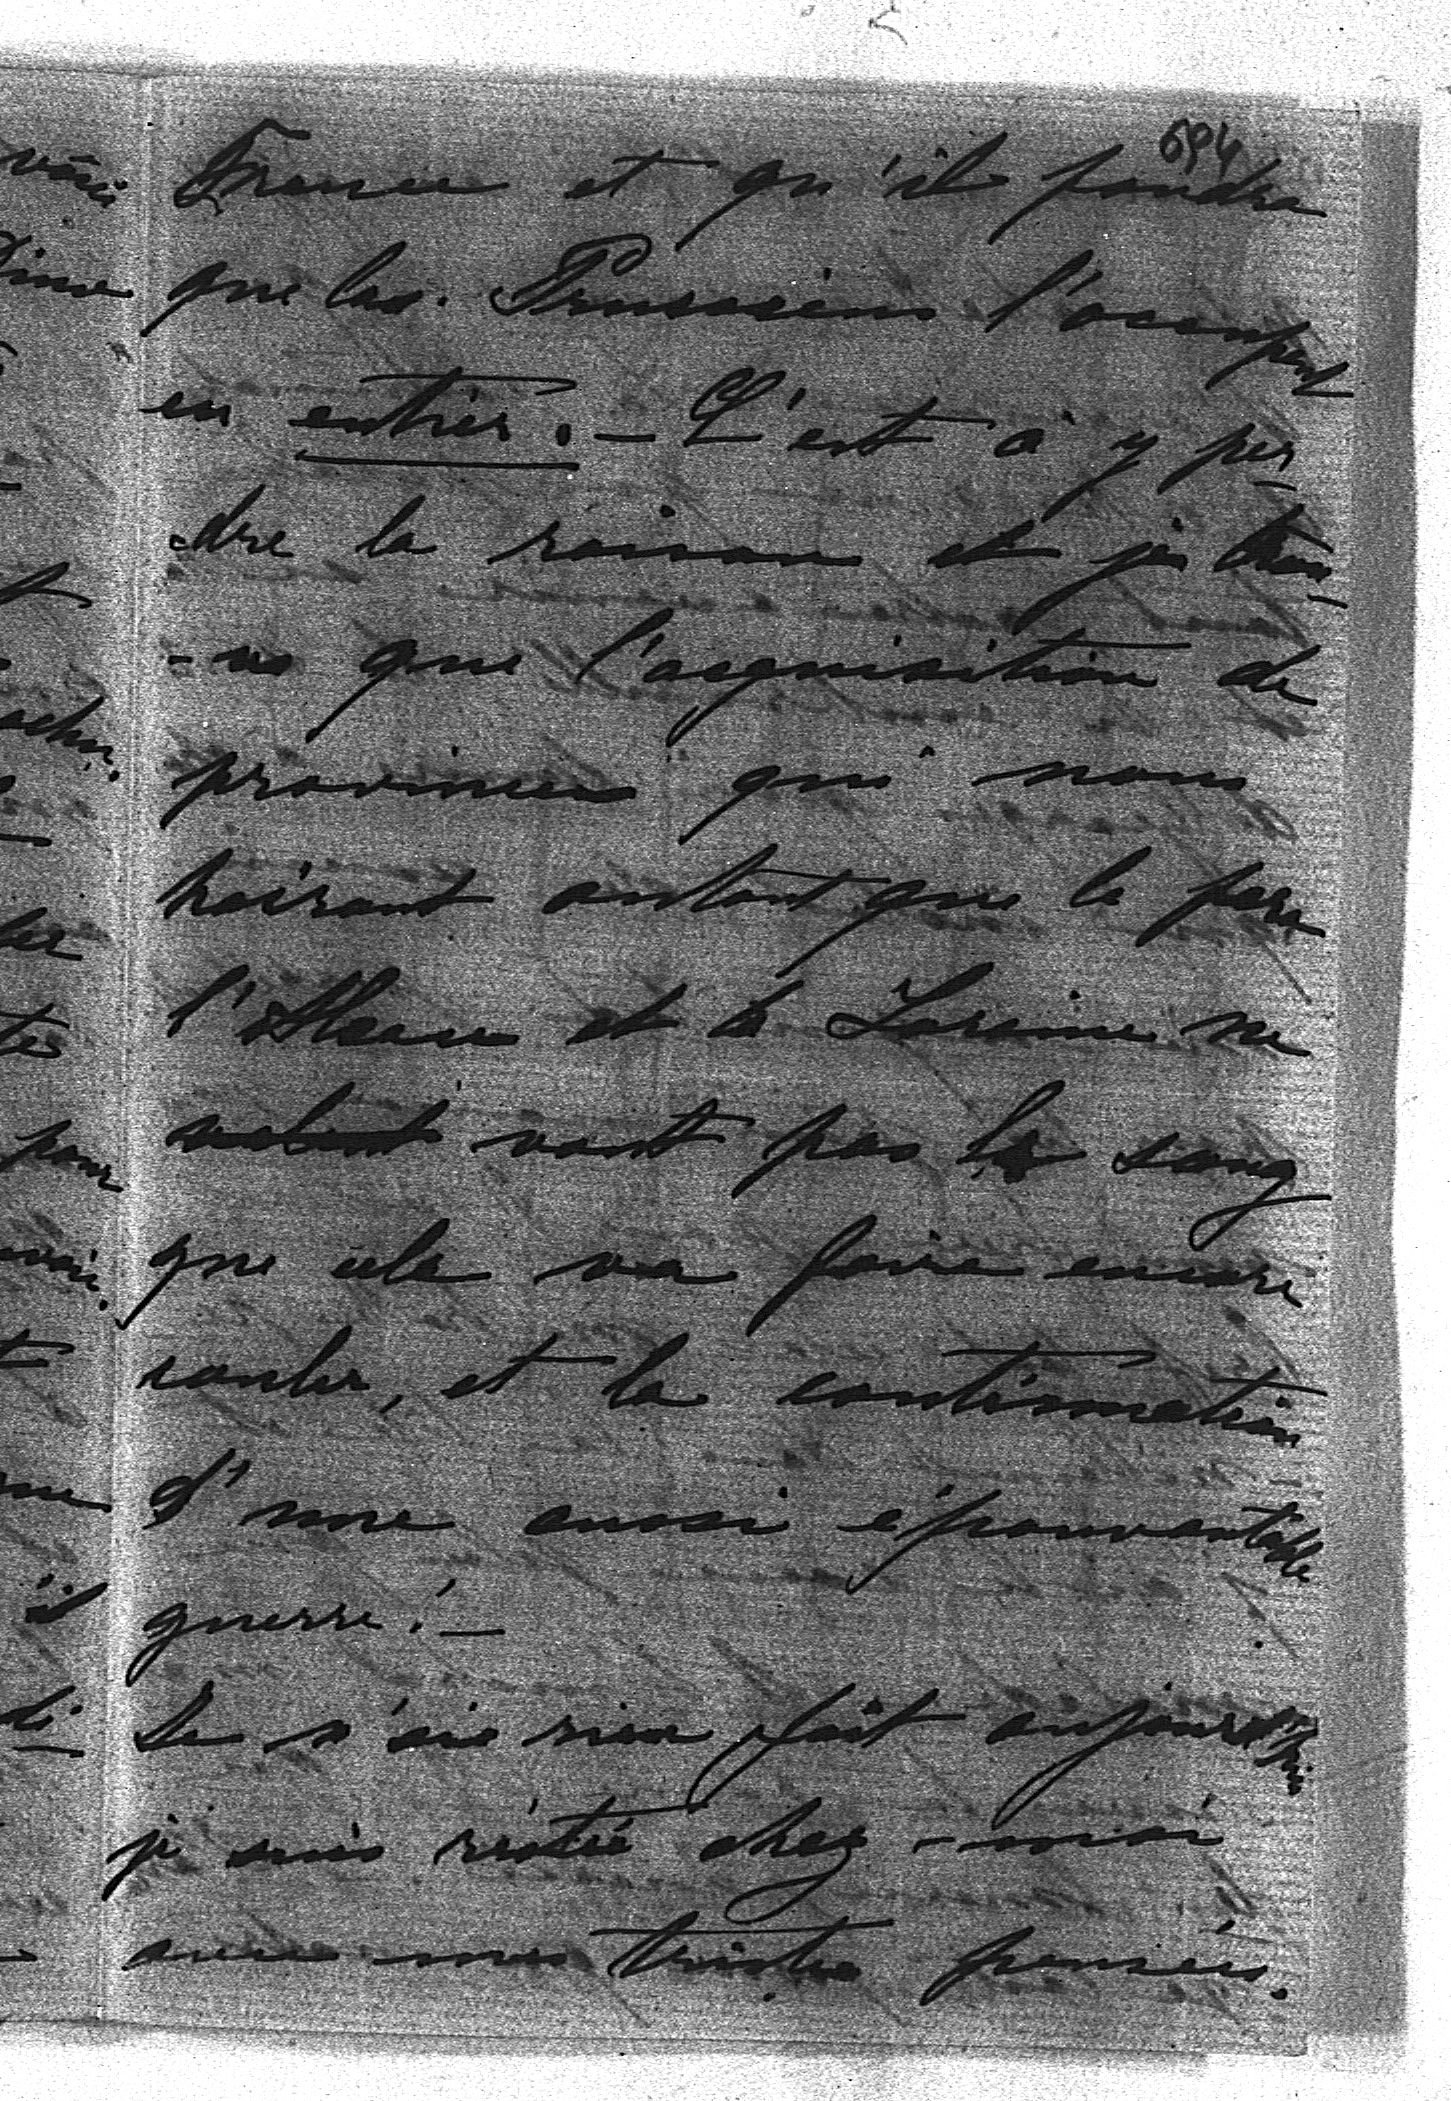 694
France et qu'il faudra
que les Prussiens l'occupent
en entier. – C'est à y per-
dre la raison et je trou-
-ve que l'acquisition de
provinces qui nous
hairont autant que le fera
l'Alsace et la Loraine ne
vaut pas le sang
que cela va faire encore
couler, et la continuation
d'une aussi épouvantable
guerre! –
Je n'ais rien fait aujourd'hui
je suis restée chez-moi
avec mes tristes pensées.